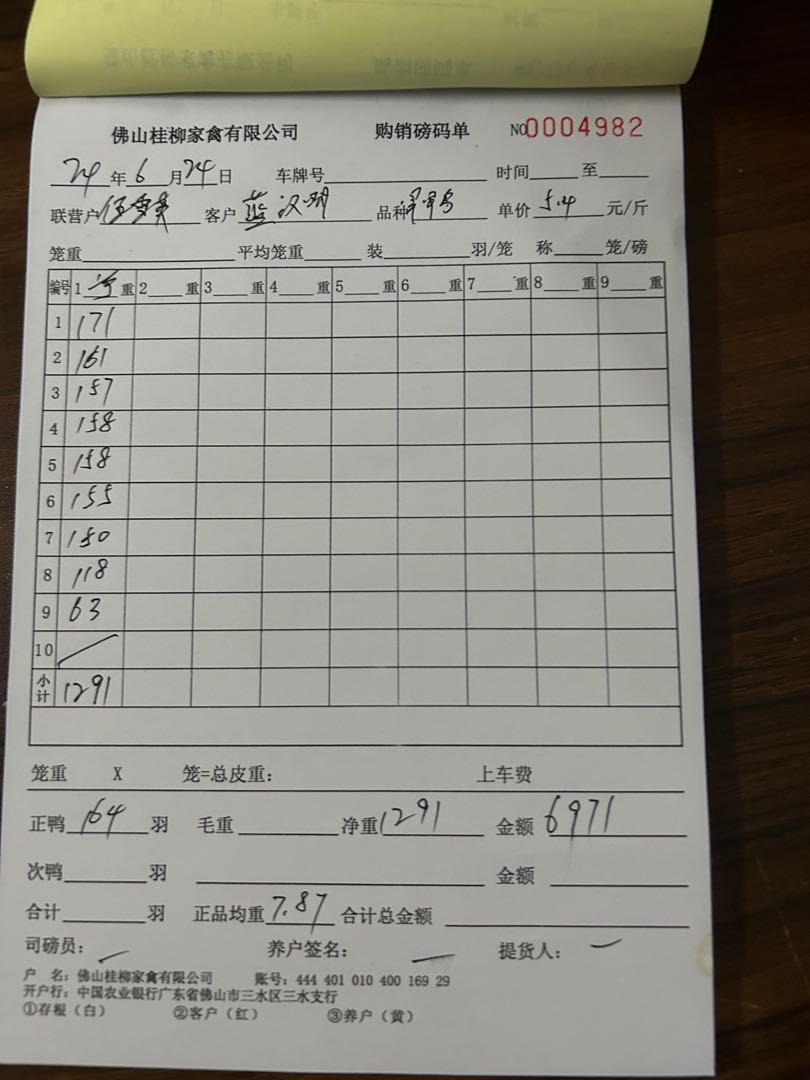 佛山桂柳家禽有限公司 购销磅码单 NO0004982
24年6月24日 车牌号 时间 至
联营户 客户 蓝汉明 品种 单价 5.4 元/斤
笼重 平均笼重 装 羽/笼 称 笼/磅
编号 1 重 2 重 3 重 4 重 5 重 6 重 7 重 8 重 9 重
1 171
2 161
3 157
4 158
5 158
6 155
7 150
8 118
9 63
10
小计 1291
笼重 X 笼=总皮重: 上车费
正鸭 164 羽 毛重 净重 1291 金额 6971
次鸭 羽 金额
合计 羽 正品均重 7.87 合计总金额
司磅员: 养户签名: 提货人:
户 名: 佛山桂柳家禽有限公司 账号: 444 401 010 400 169 29
开户行: 中国农业银行广东省佛山市三水区三水支行
①存根(白) ②客户(红) ③养户(黄)